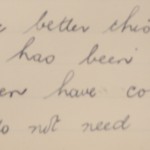 better this
has been
have co
do not need